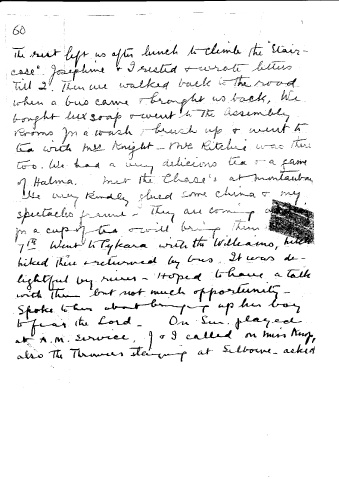 60
The rest left us after lunch to climb the "Stair-
case". Josephine & I rested & wrote letters
till 2. Then we walked back to the road
when a bus came & brought us back. We
bought soap & went to the Assembly
Rooms for a wash & brush up & went to
tea with Mrs Knight - Mrs Ritchie was there
too. We had a very delicious tea & a game
of Halma. Met the Chase's at Montauban
He very kindly glued some china & my
spectacles frame - They are coming
for a cup of tea & will bring them
7th Went to Sykara with the Williams,
hiked there & returned by bus. It was de-
lightful by river - Hoped to have a talk
with them but not much opportunity -
Spoke to her about bringing up her boy
to fear the Lord - On Sun. played
at A.M. Service. J & I called on Miss
also the Throwers staying at Selborne - asked